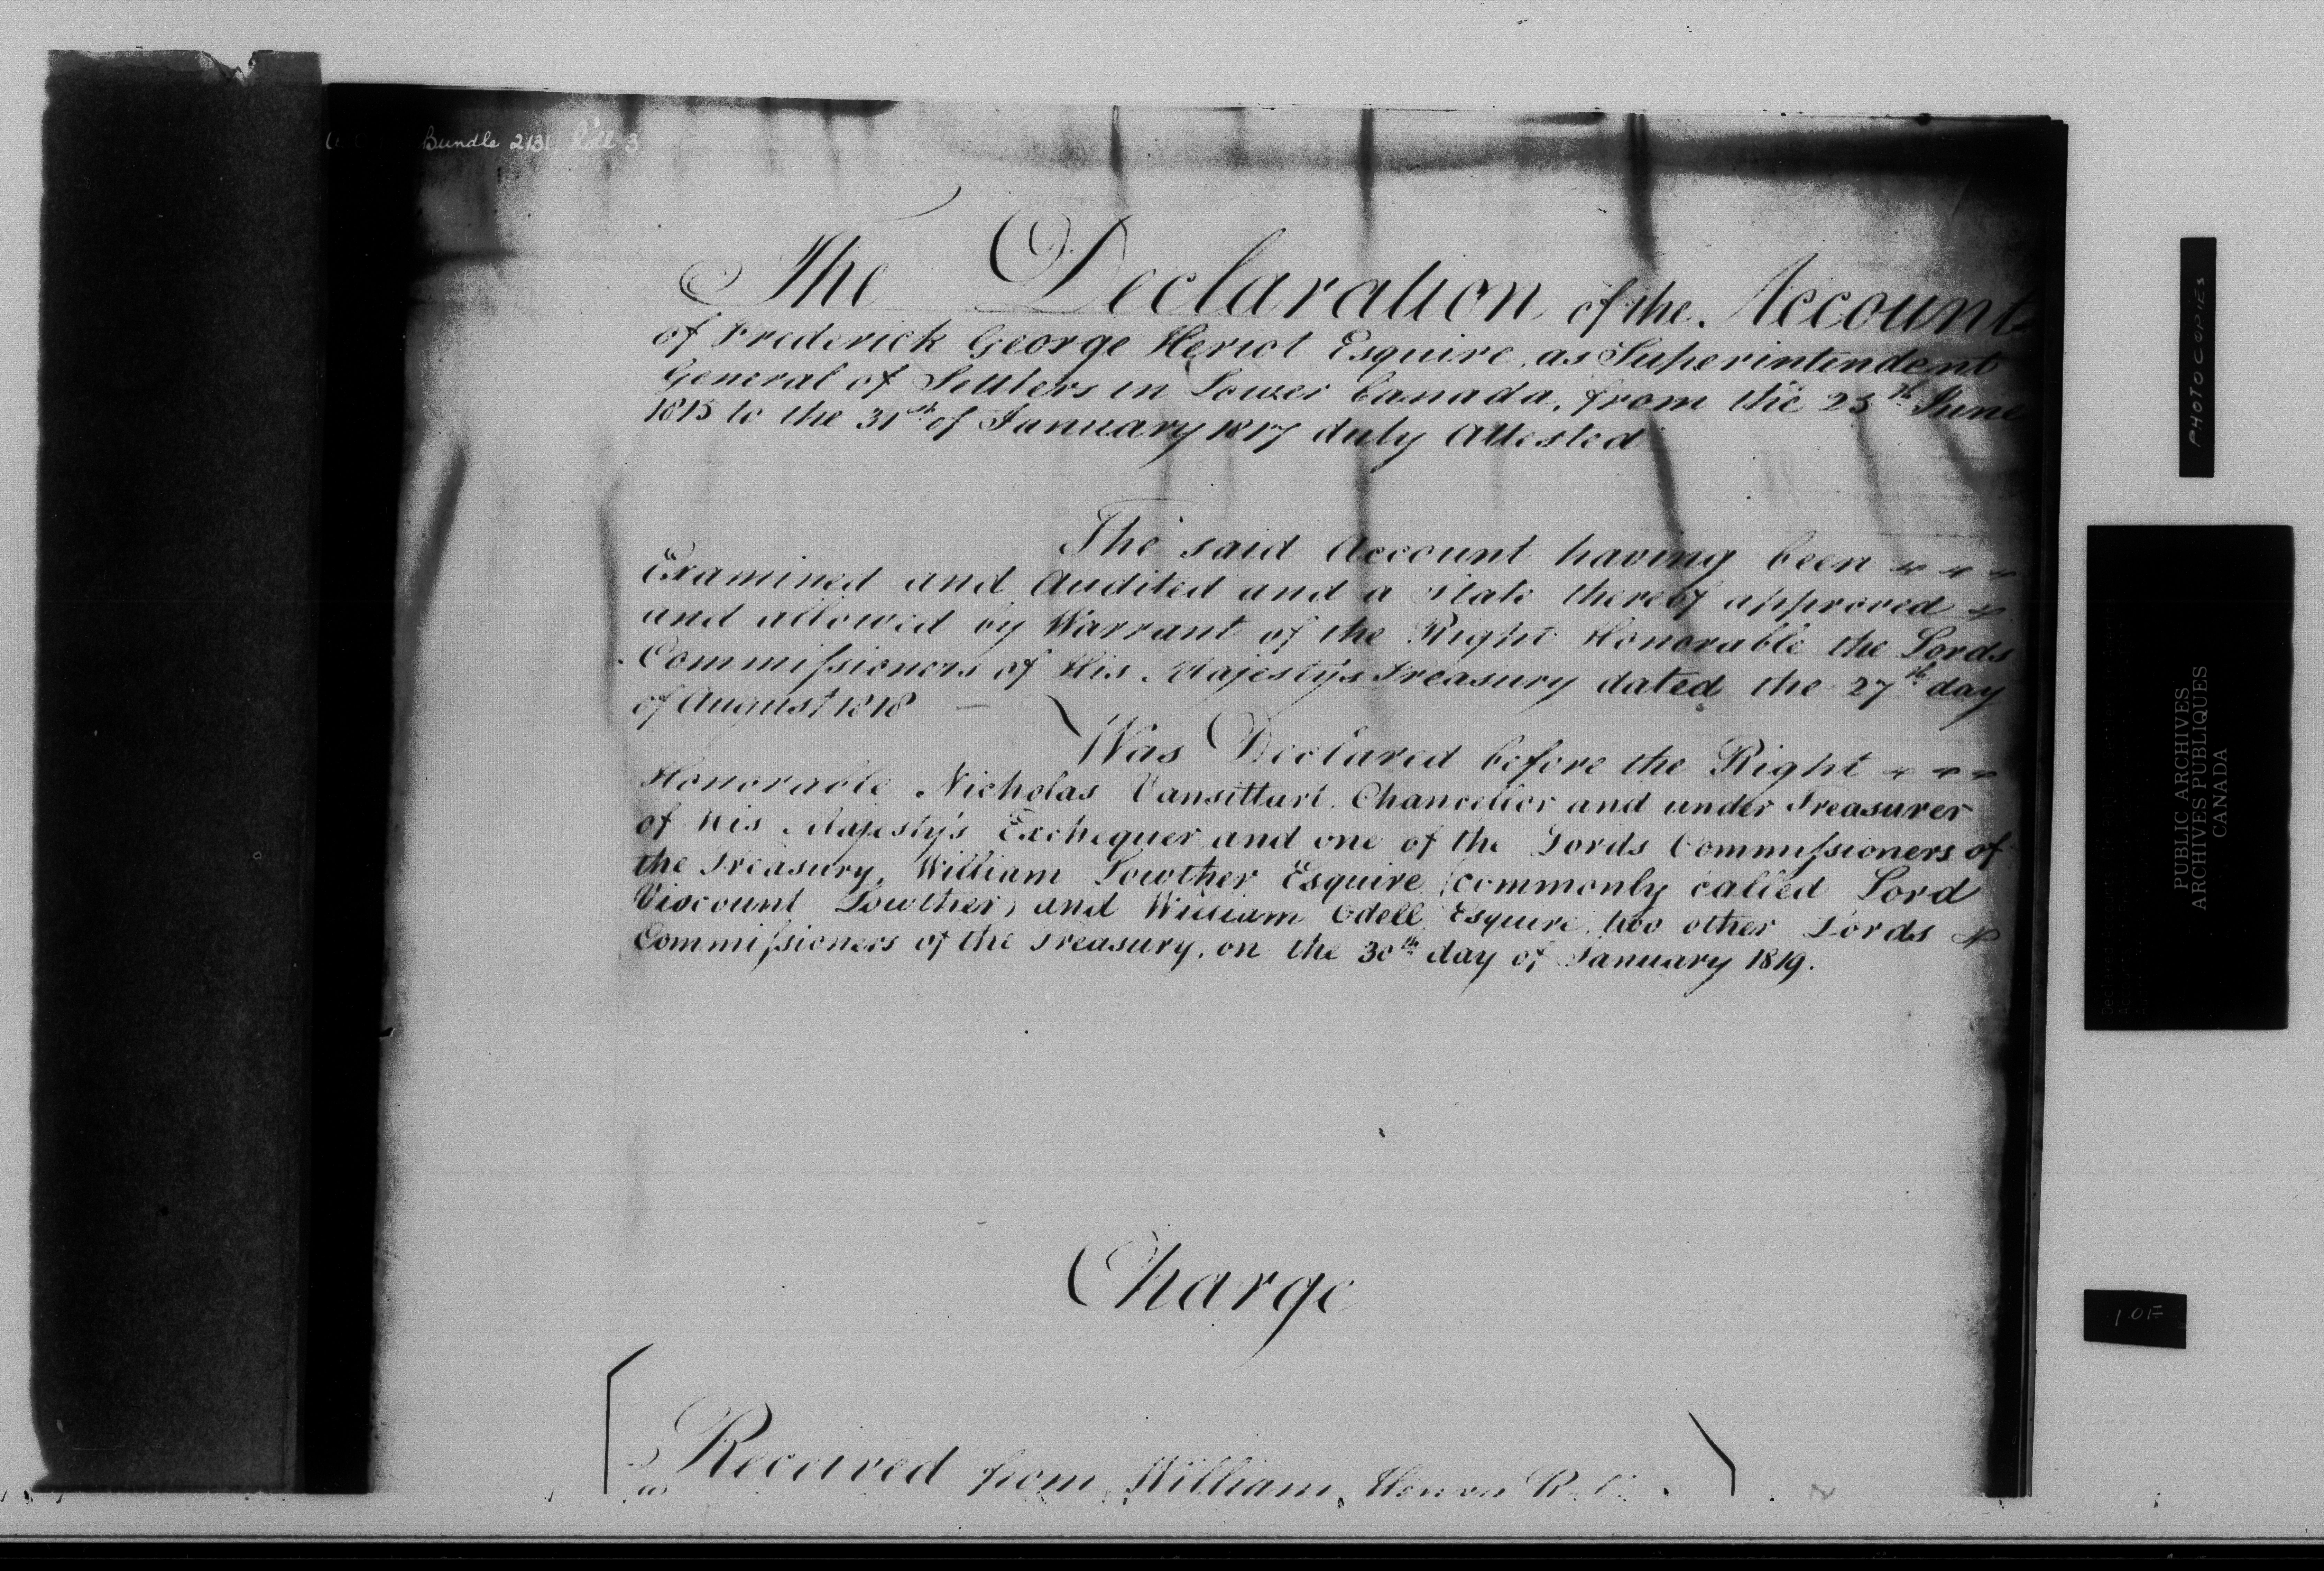 Bundle 2131 Roll 3
The Declaration of the Account
of Frederick George Heriot Esquire, as Superintendent
General of Settlers in Lower Canada, from the 25th June
1815 to the 31st of January 1817 duly Attested
The said Account having been
Examined and Audited and a State thereof approved
and allowed by Warrant of the Right Honorable the Lords
Commissioners of His Majesty's Treasury dated the 27th day
of August 1818 —
Was Declared before the Right
Honorable Nicholas Vansittart. Chancellor and under Treasurer
of His Majesty's Exchequer and one of the Lords Commissioners of
the Treasury, William Lowther Esquire (commonly called Lord
Viscount Lowther) and William Odell Esquire, two other Lords
Commissioners of the Treasury, on the 30th day of January 1819.
Charge
Received from William Henry
PHOTOCOPIES
PUBLIC ARCHIVES
ARCHIVES PUBLIQUES
CANADA